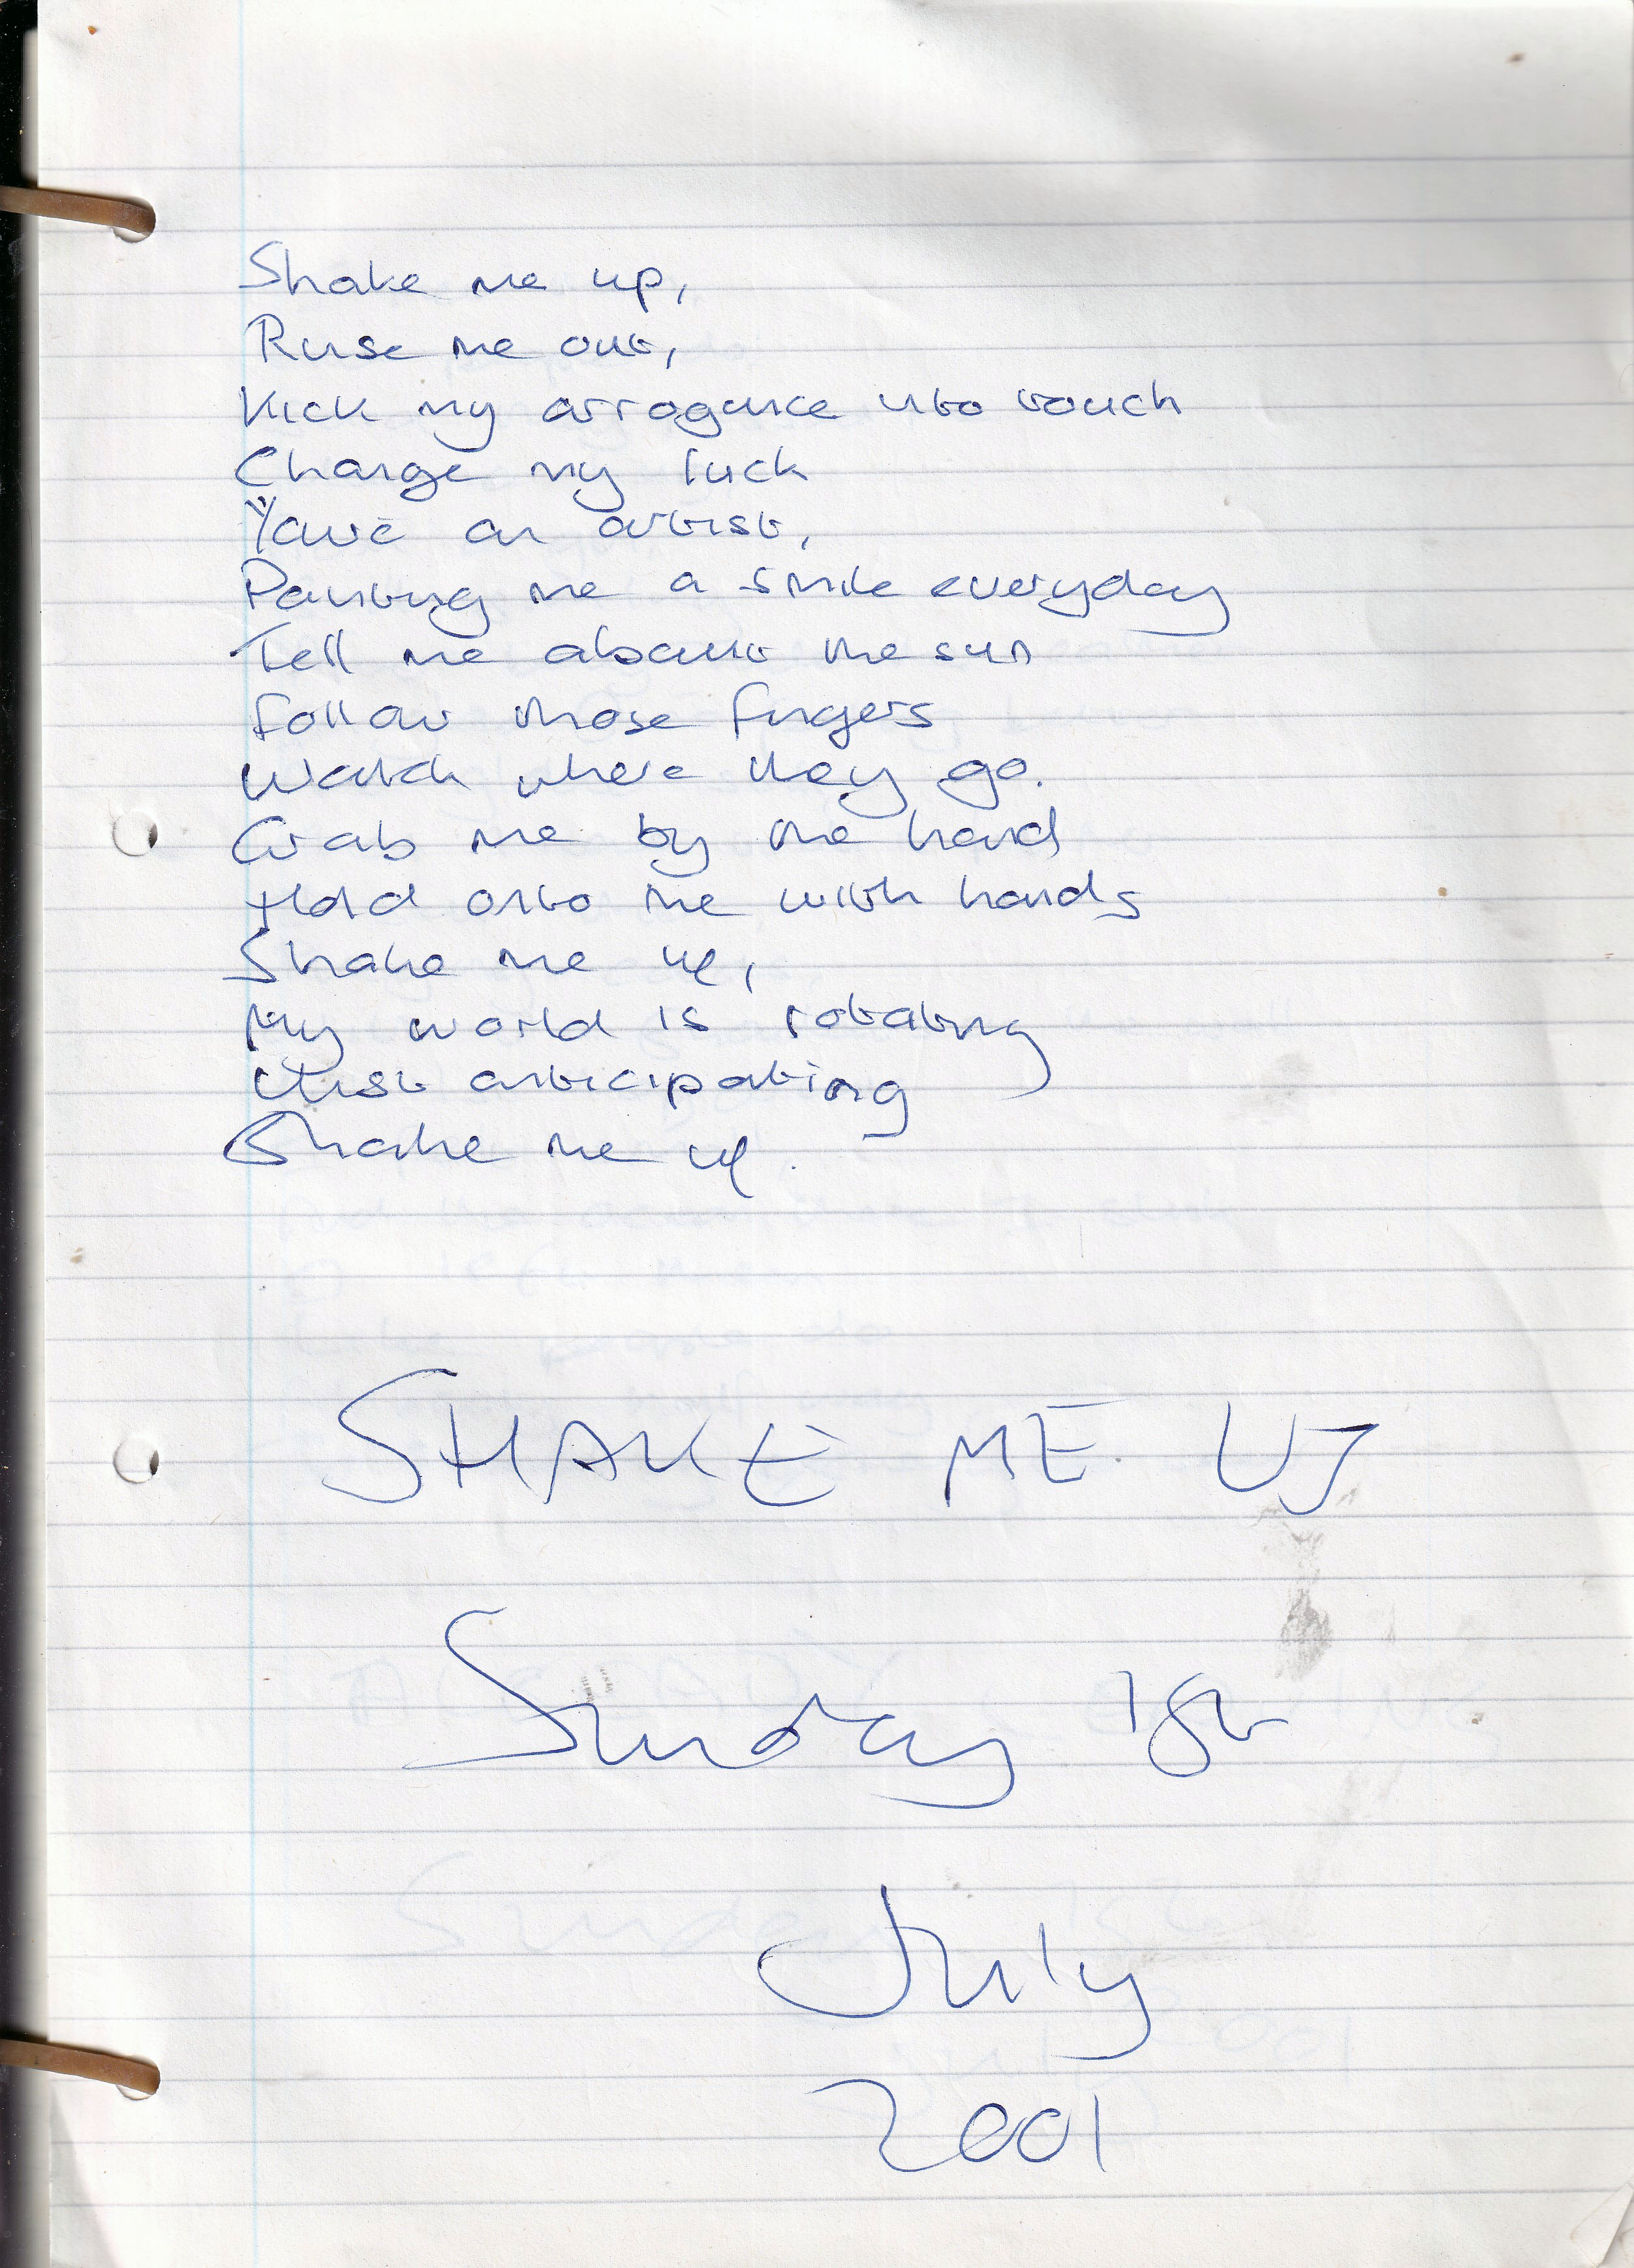 Shake me up,
Rinse me out,
Kick my arrogance into touch
Change my luck
You're an artist,
Painting me a smile everyday
Tell me about the sun
Follow those fingers
Watch where they go.
Grab me by the hand
Hold onto me with hands
Shake me up,
My world is rotating
Just anticipating
Shake me up.
SHAKE ME UP
Sunday 1st
July
2001